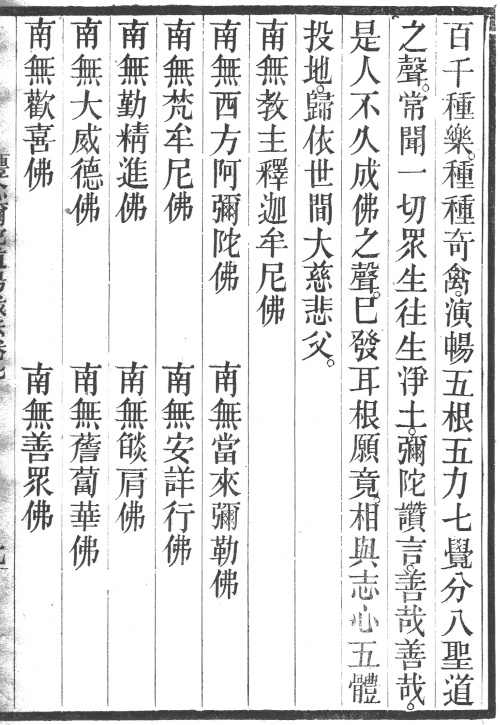 百千種樂。種種奇禽。演暢五根五力七覺分八聖道
之聲。常聞一切眾生往生淨土。彌陀讚言。善哉善哉。
是人不久成佛之聲。已發耳根願竟。相與志心五體
投地。歸依世間大慈悲父。
南無教主釋迦牟尼佛
南無西方阿彌陀佛　南無當來彌勒佛
南無梵牟尼佛　南無安詳行佛
南無勤精進佛　南無燄肩佛
南無大威德佛　南無薝蔔華佛
南無歡喜佛　南無善眾佛